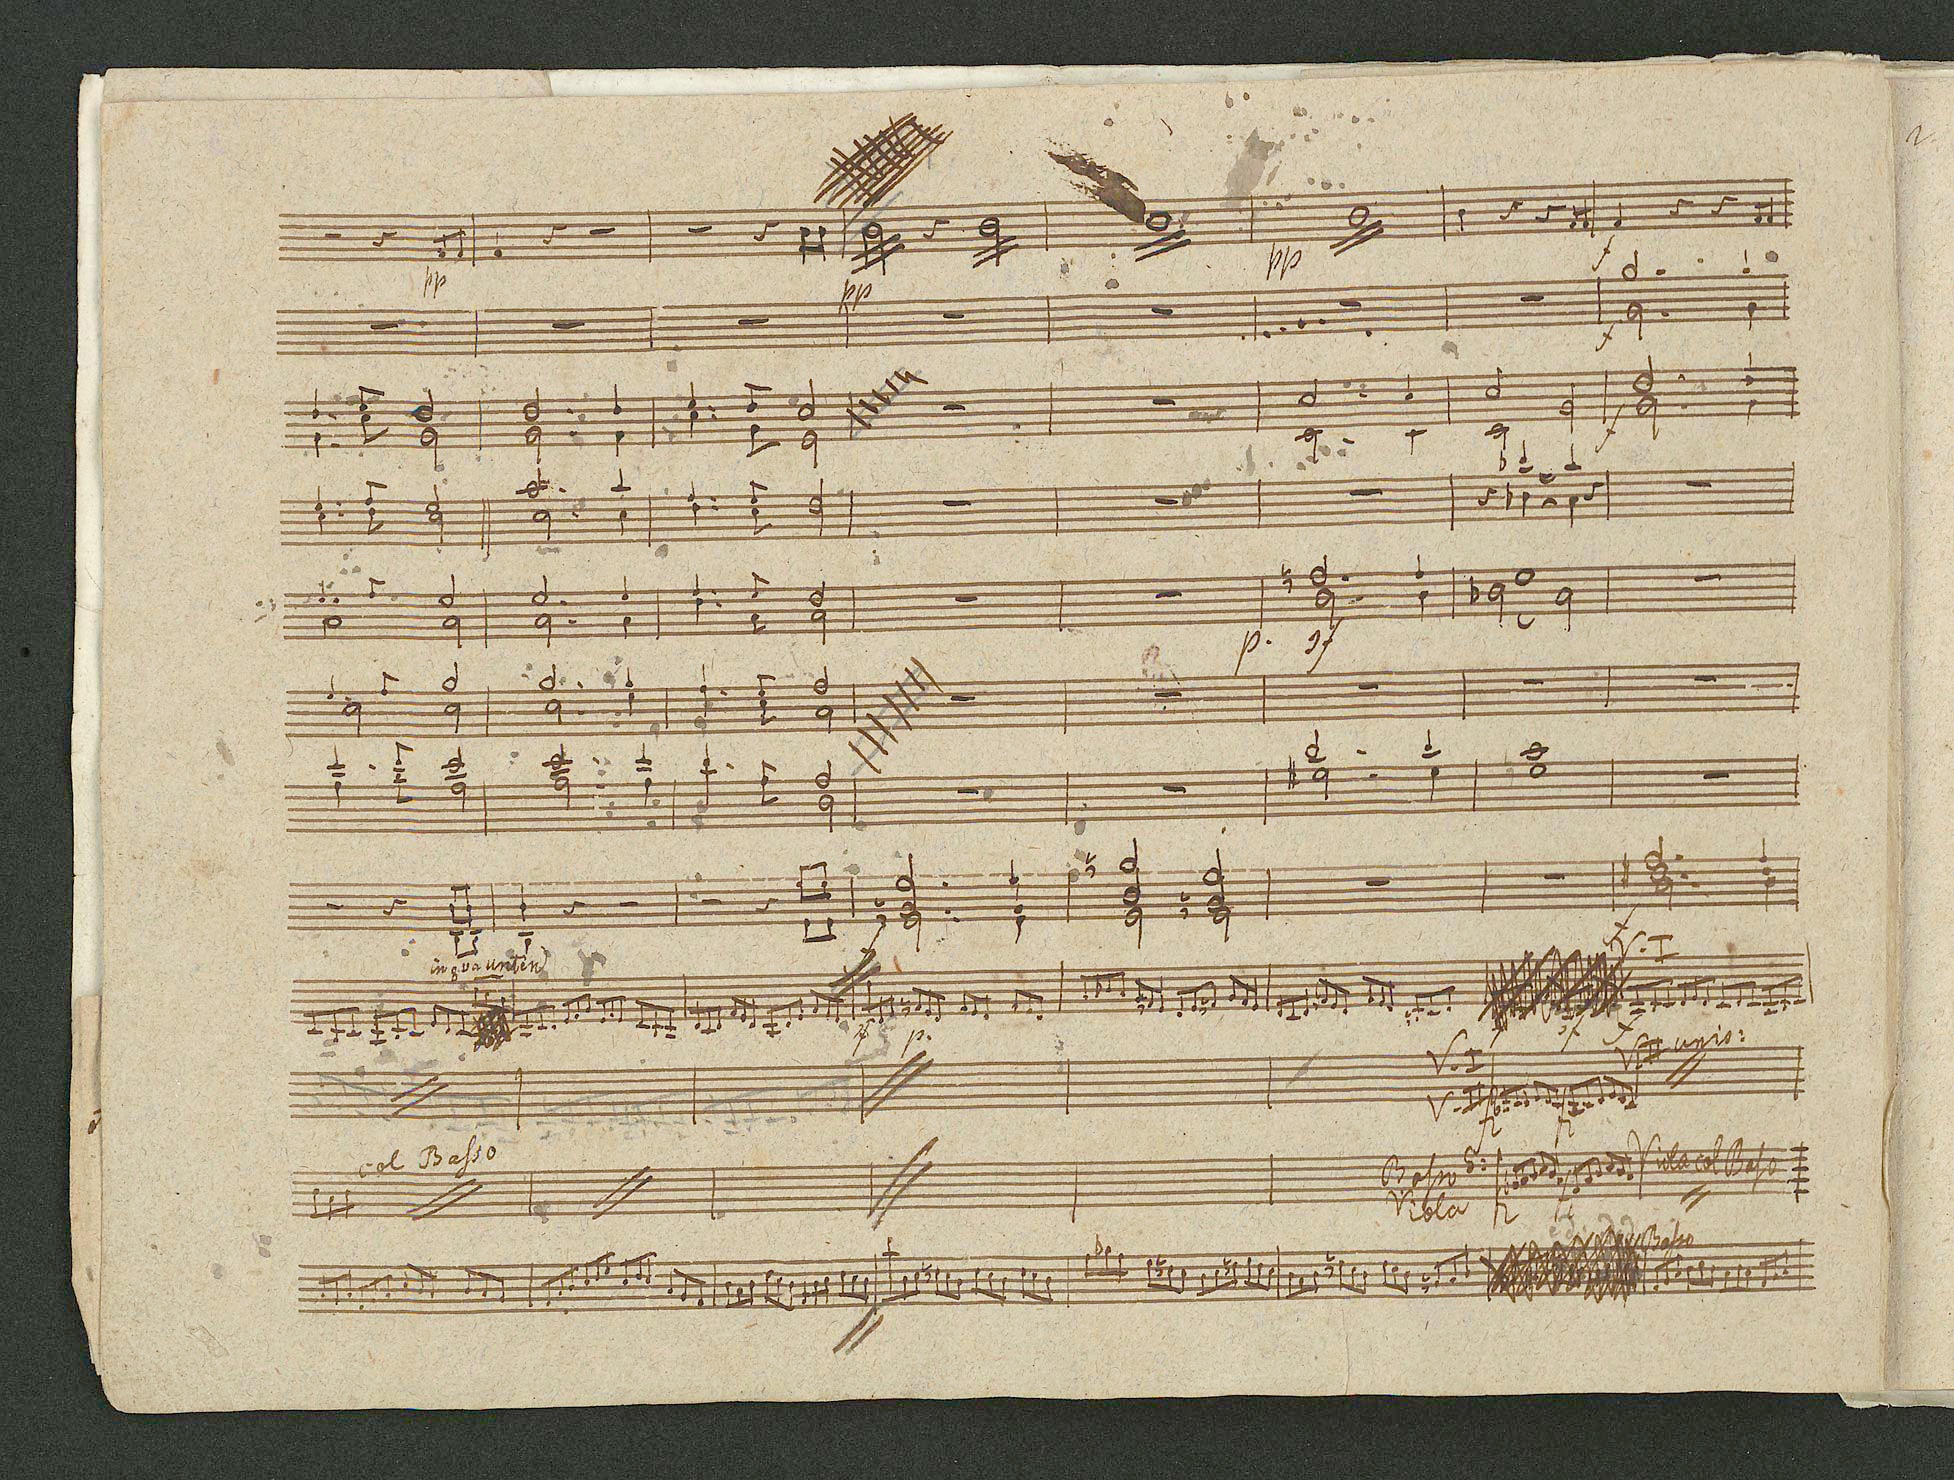 pp
pp
pp
f
f
f
p. sf
f
in 8va unten
V. I
sf p. sf f
V. I
V. II unis:
V. II
col Basso
Basso 8:
Viola col Basso
Viola
Basso